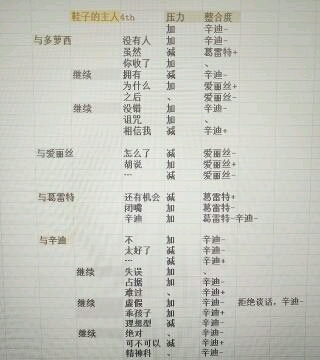 鞋子的主人4th 压力 整合度
加 辛迪-
与多萝西 没有人 加 辛迪-
虽然 减 葛雷特+
你收了 加 、
继续 拥有 减 辛迪-
为什么 加 爱丽丝+
之后 、 爱丽丝-
继续 没错 加 辛迪-
诅咒 加 、
相信我 减 辛迪+
与爱丽丝 怎么了 减 爱丽丝-
胡说 加 爱丽丝+
… 减 爱丽丝-
与葛雷特 还有机会 减 葛雷特+
闭嘴 加 葛雷特-
辛迪 加 葛雷特-辛迪-
与辛迪 不 加 辛迪-
太好了 减 辛迪-
… 减 辛迪+
继续 失误 加 、
占据 加 辛迪-
难过 、 辛迪+
继续 虚假 加 辛迪- 拒绝谈话，辛迪-
乖孩子 加 辛迪+
理想型 减 辛迪-
继续 绝对 、 辛迪-
可不可以 减 辛迪+
精神科 、 辛迪-